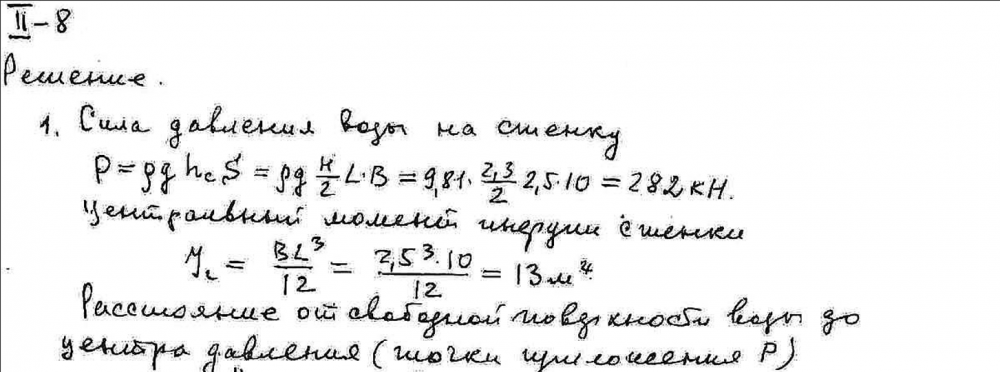 II-8
Решение.
1. Сила давления воды на стенку
P = ρg h_c S = ρg H/2 L·B = 9,81·2,3/2 2,5·10 = 282 кН.
Центральный момент инерции стенки
J_c = BL³/12 = 2,5³·10/12 = 13 м⁴
Расстояние от свободной поверхности воды до
центра давления (точки приложения P)